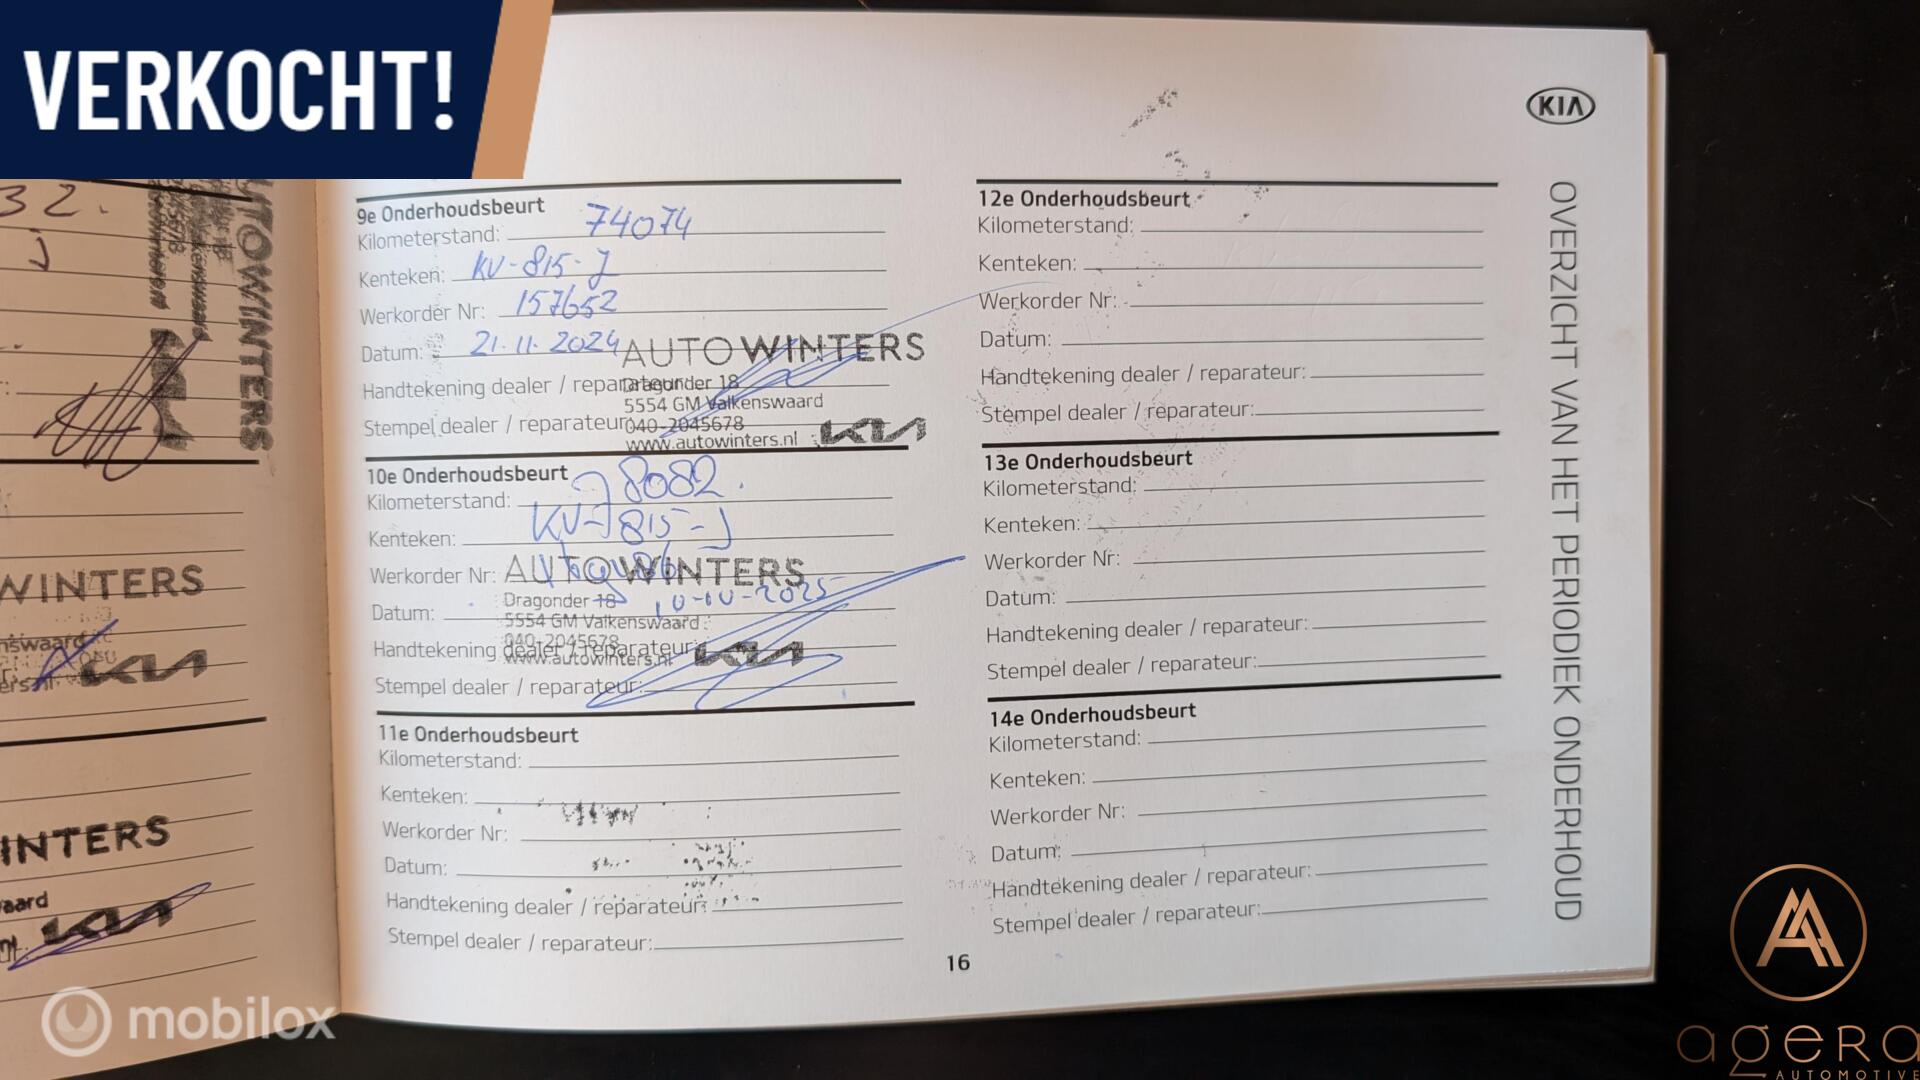 VERKOCHT!
32.
j
AUTOWINTERS
WINTERS
nswaard
WINTERS
aard
KIA
OVERZICHT VAN HET PERIODIEK ONDERHOUD
9e Onderhoudsbeurt
Kilometerstand: 74074
Kenteken: KV-815-J
Werkorder Nr: 157652
Datum: 21.11.2024
Handtekening dealer / reparateur:
Stempel dealer / reparateur:
AUTOWINTERS
Dragonder 18
5554 GM Valkenswaard
040-2045678
www.autowinters.nl KIA
10e Onderhoudsbeurt
Kilometerstand: 78082.
Kenteken: KV-815-J
Werkorder Nr:
Datum:
Handtekening dealer / reparateur:
Stempel dealer / reparateur:
AUTOWINTERS
Dragonder 18
5554 GM Valkenswaard
040-2045678
www.autowinters.nl KIA
11e Onderhoudsbeurt
Kilometerstand:
Kenteken:
Werkorder Nr:
Datum:
Handtekening dealer / reparateur:
Stempel dealer / reparateur:
12e Onderhoudsbeurt
Kilometerstand:
Kenteken:
Werkorder Nr:
Datum:
Handtekening dealer / reparateur:
Stempel dealer / reparateur:
13e Onderhoudsbeurt
Kilometerstand:
Kenteken:
Werkorder Nr:
Datum:
Handtekening dealer / reparateur:
Stempel dealer / reparateur:
14e Onderhoudsbeurt
Kilometerstand:
Kenteken:
Werkorder Nr:
Datum:
Handtekening dealer / reparateur:
Stempel dealer / reparateur:
16
mobilox
agera
AUTOMOTIVE